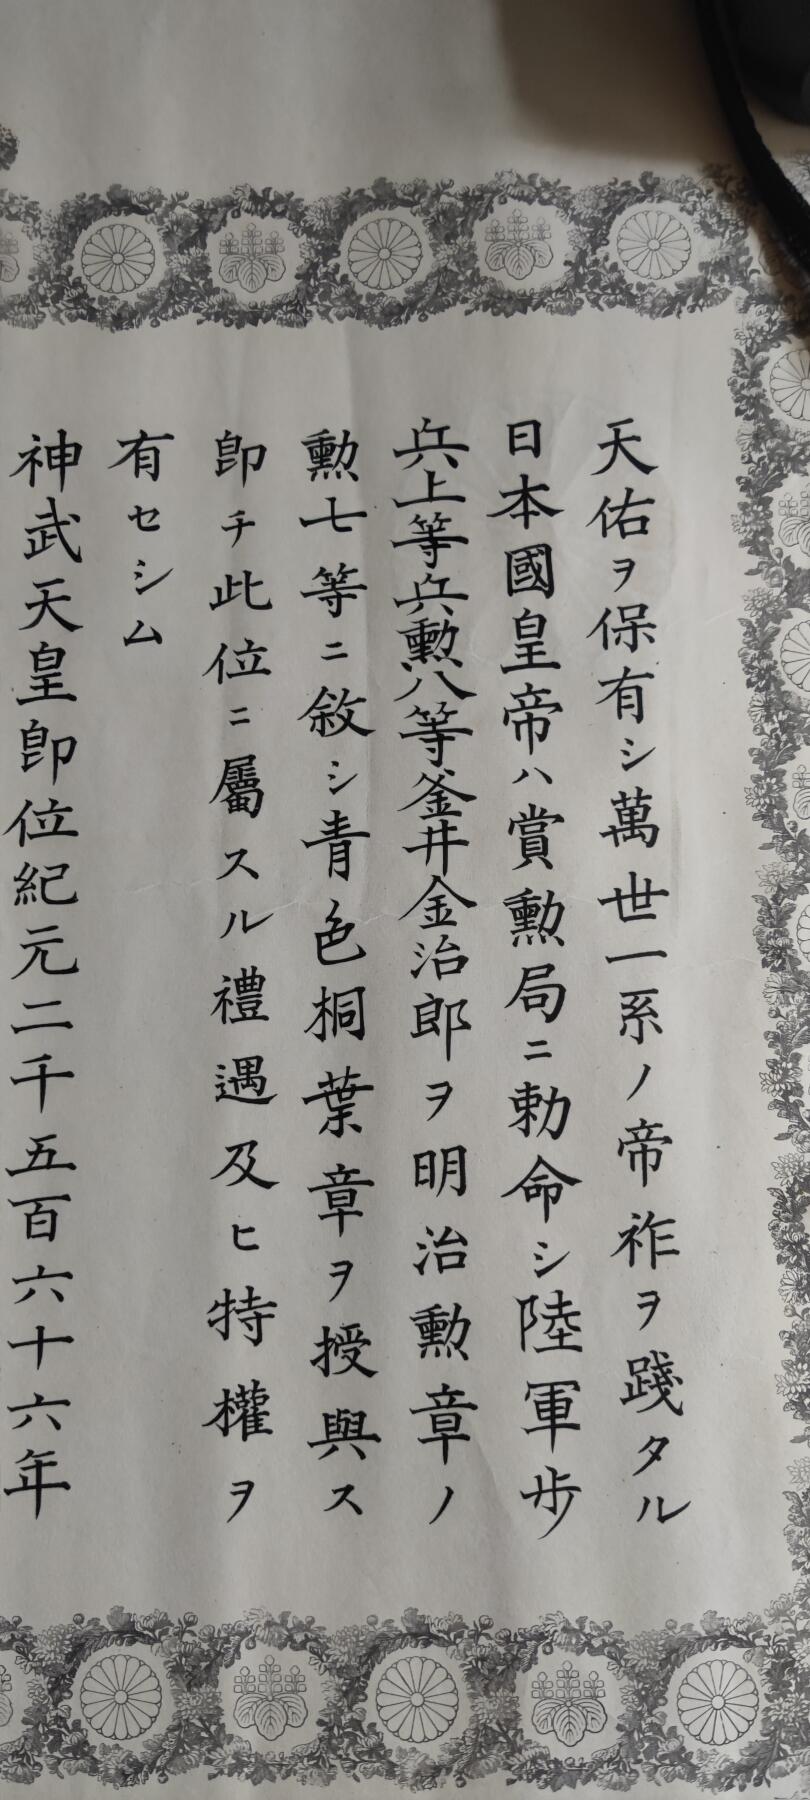 天佑ヲ保有シ萬世一系ノ帝祚ヲ踐タル
日本國皇帝ハ賞勲局ニ勅命シ陸軍歩
兵上等兵勲八等釜井金治郎ヲ明治勲章ノ
勲七等ニ敘シ青色桐葉章ヲ授與ス
即チ此位ニ屬スル禮遇及ヒ特權ヲ
有セシム
神武天皇即位紀元二千五百六十六年